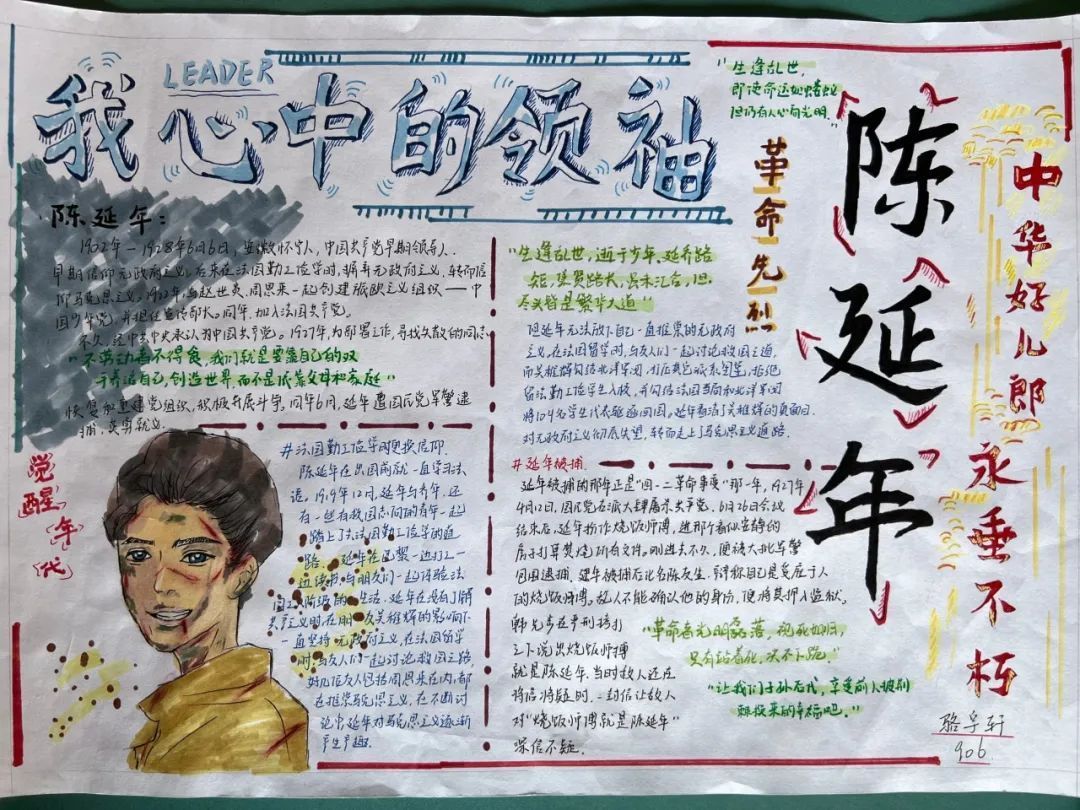 LEADER
我心中的领袖
陈延年:
1902年—1928年6月6日,安徽怀宁人,中国共产党早期领导人.
早期信仰无政府主义,后来在法国勤工俭学时,摒弃无政府主义,转而信
仰马克思主义。1922年,与赵世炎、周恩来一起创建旅欧主义组织——中
国少年党,并担任宣传部长。同年,加入法国共产党。
不久,经中共中央承认为中国共产党。1927年,为部署工作,寻找失散的同志
"不劳动者不得食,我们就是要靠自己的双
手养活自己,创造世界,而不是依靠父母和家庭"
恢复和重建党组织,积极开展斗争。同年6月,延年遭国民党军警逮
捕,英勇就义.
觉醒年代
#法国勤工俭学时更换信仰.
陈延年在出国前就一直学习法
语,1919年12月,延年与乔年,还
有一些有救国志向的青年一起
踏上了去法国勤工俭学的道
路。延年在巴黎一边打工一
边读书,与朋友们一起体验法
国工人阶级的生活,延年在没有了解
共产主义时在朋友吴稚辉的影响下
一直坚持无政府主义,在法国留学
时,与友人们一起讨论救国之路,
好几位友人包括周恩来在内,都
在推崇马克思主义,在不断讨
论中延年对马克思主义逐渐
产生兴趣.
"生逢乱世,逝于少年,延乔路
短,集贤路长,虽未汇合,但
尽头皆是繁华大道"
陈延年无法放下自己一直推崇的无政府
主义,在法国留学时,与友人们一起讨论救国之道,
而吴稚辉勾结北洋军阀,
留法勤工俭学生入校,并勾结法国当局和北洋军阀
将104名学生代表驱逐回国,延年看清了吴稚辉的真面目.
对无政府主义彻底失望,转而走上了马克思主义道路.
#延年被捕.
延年被捕的那年正是"四一二革命事变"那一年,1927年
4月12日,国民党右派大肆屠杀共产党,6月26日会议
结束后,延年扮作烧饭师傅,进那个看似安静的
房子打算焚烧所有文件。刚进去不久,便被大批军警
包围逮捕,延年被捕后化名陈友生,辩称自己是受雇于人
的烧饭师傅,敌人不能确认他的身份,便将其押入监狱.
韩先步在严刑拷打
之下说出烧饭师傅
就是陈延年,当时敌人还在
将信将疑时,一封信让敌人
对"烧饭师傅就是陈延年"
深信不疑.
"革命者光明磊落,视死如归,
只有站着死,决不下跪."
"让我们子孙后代,享受前人披荆
斩棘来的幸福吧."
"生逢乱世,
即使命运如蝼蚁
但仍有人心向光明."
革命先烈
陈延年
中华好儿郎永垂不朽
骆孚轩
906